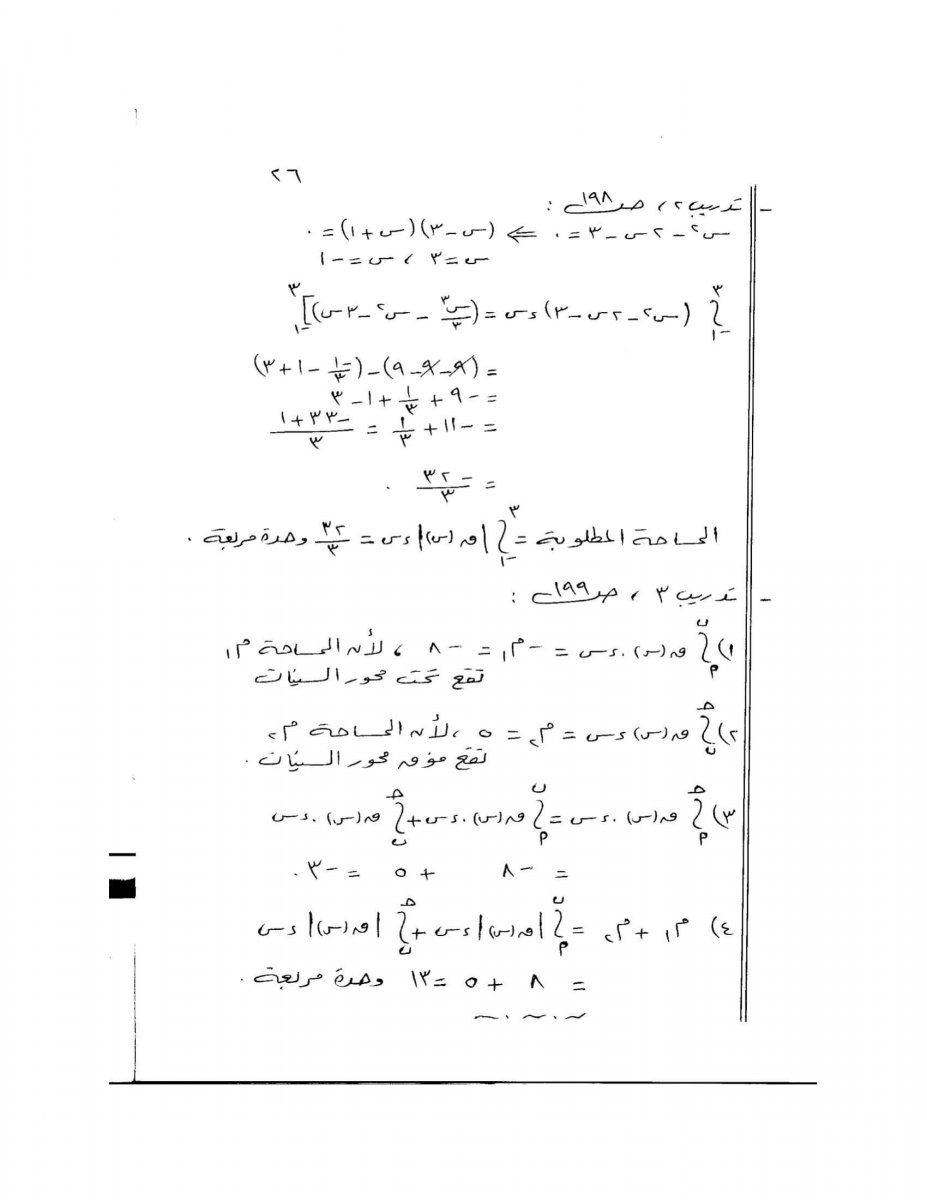 ٢٦
- تدريب ٢ ، صـ١٩٨ـ :
س² - ٢س - ٣ = ٠ ⇐ (س - ٣)(س + ١) = ٠
س = ٣ ، س = -١
∫₋₁³ (س² - ٢س - ٣) ءس = (س³/٣ - س² - ٣س)]₋₁³
= (٩ - ٩ - ٩) - (-١/٣ - ١ + ٣)
= -٩ + ١/٣ + ١ - ٣
= -١١ + ١/٣ = (-٣٣ + ١)/٣
= -٣٢/٣ .
المساحة المطلوبة = ∫₋₁³ |ق(س)| ءس = ٣٢/٣ وحدة مربعة .
- تدريب ٣ ، صـ١٩٩ـ :
١) ∫ₐᵇ ق(س) . ءس = -م₁ = -٨ ، لأن المساحة م₁
تقع تحت محور السينات
٢) ∫ ق(س) ءس = م₂ = ٥ ، لأن المساحة م₂
تقع فوق محور السينات .
٣) ∫ ق(س) . ءس = ∫ ق(س) . ءس + ∫ ق(س) . ءس
= -٨ + ٥ = -٣ .
٤) م₁ + م₂ = ∫ |ق(س)| ءس + ∫ |ق(س)| ءس
= ٨ + ٥ = ١٣ وحدة مربعة .